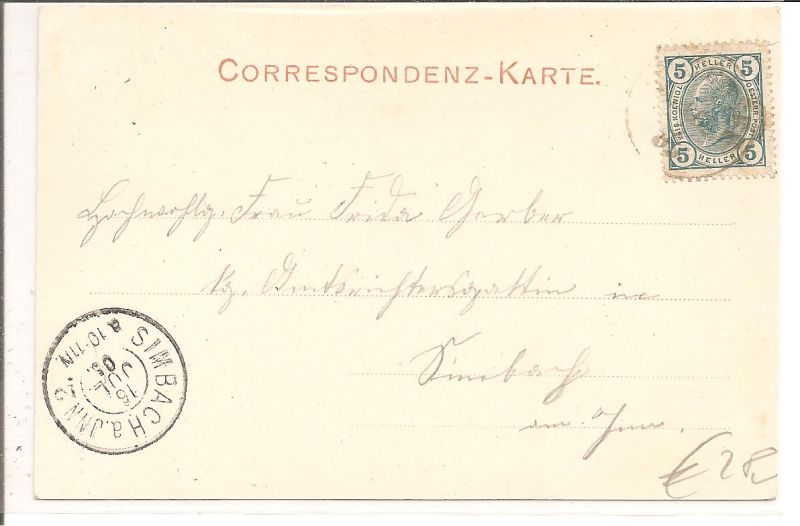 CORRESPONDENZ-KARTE.
5 HELLER 5
KAIS. KOENIGL. OESTERR. POST
5 HELLER 5
Hochwohlg. Frau Frida Gerber
kg. Amtsrichtersgattin in
Simbach
am Inn.
SIMBACH a. INN 2
16
JUL
05.
€ 28